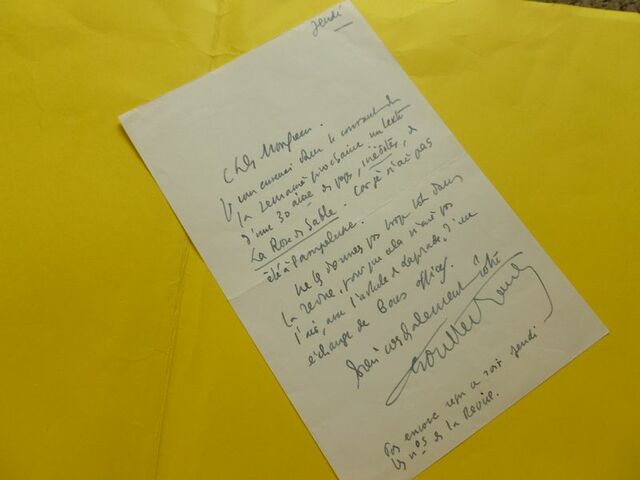 Jeudi
Cher Monsieur.
Je vous enverrai dans le courant de
la semaine prochaine un texte
d'une 30 aine de pages, inédites, de
La Rose de Sable. Car je n'ai pas
été à Pampelune.
Ne le donnez pas trop tôt dans
la revue, pour que cela n'ait pas
l'air, avec l'article de d'un
échange de Bons offices.
Bien cordialement vôtre
Pas encore reçu ce soir jeudi
les nos de la Revue.